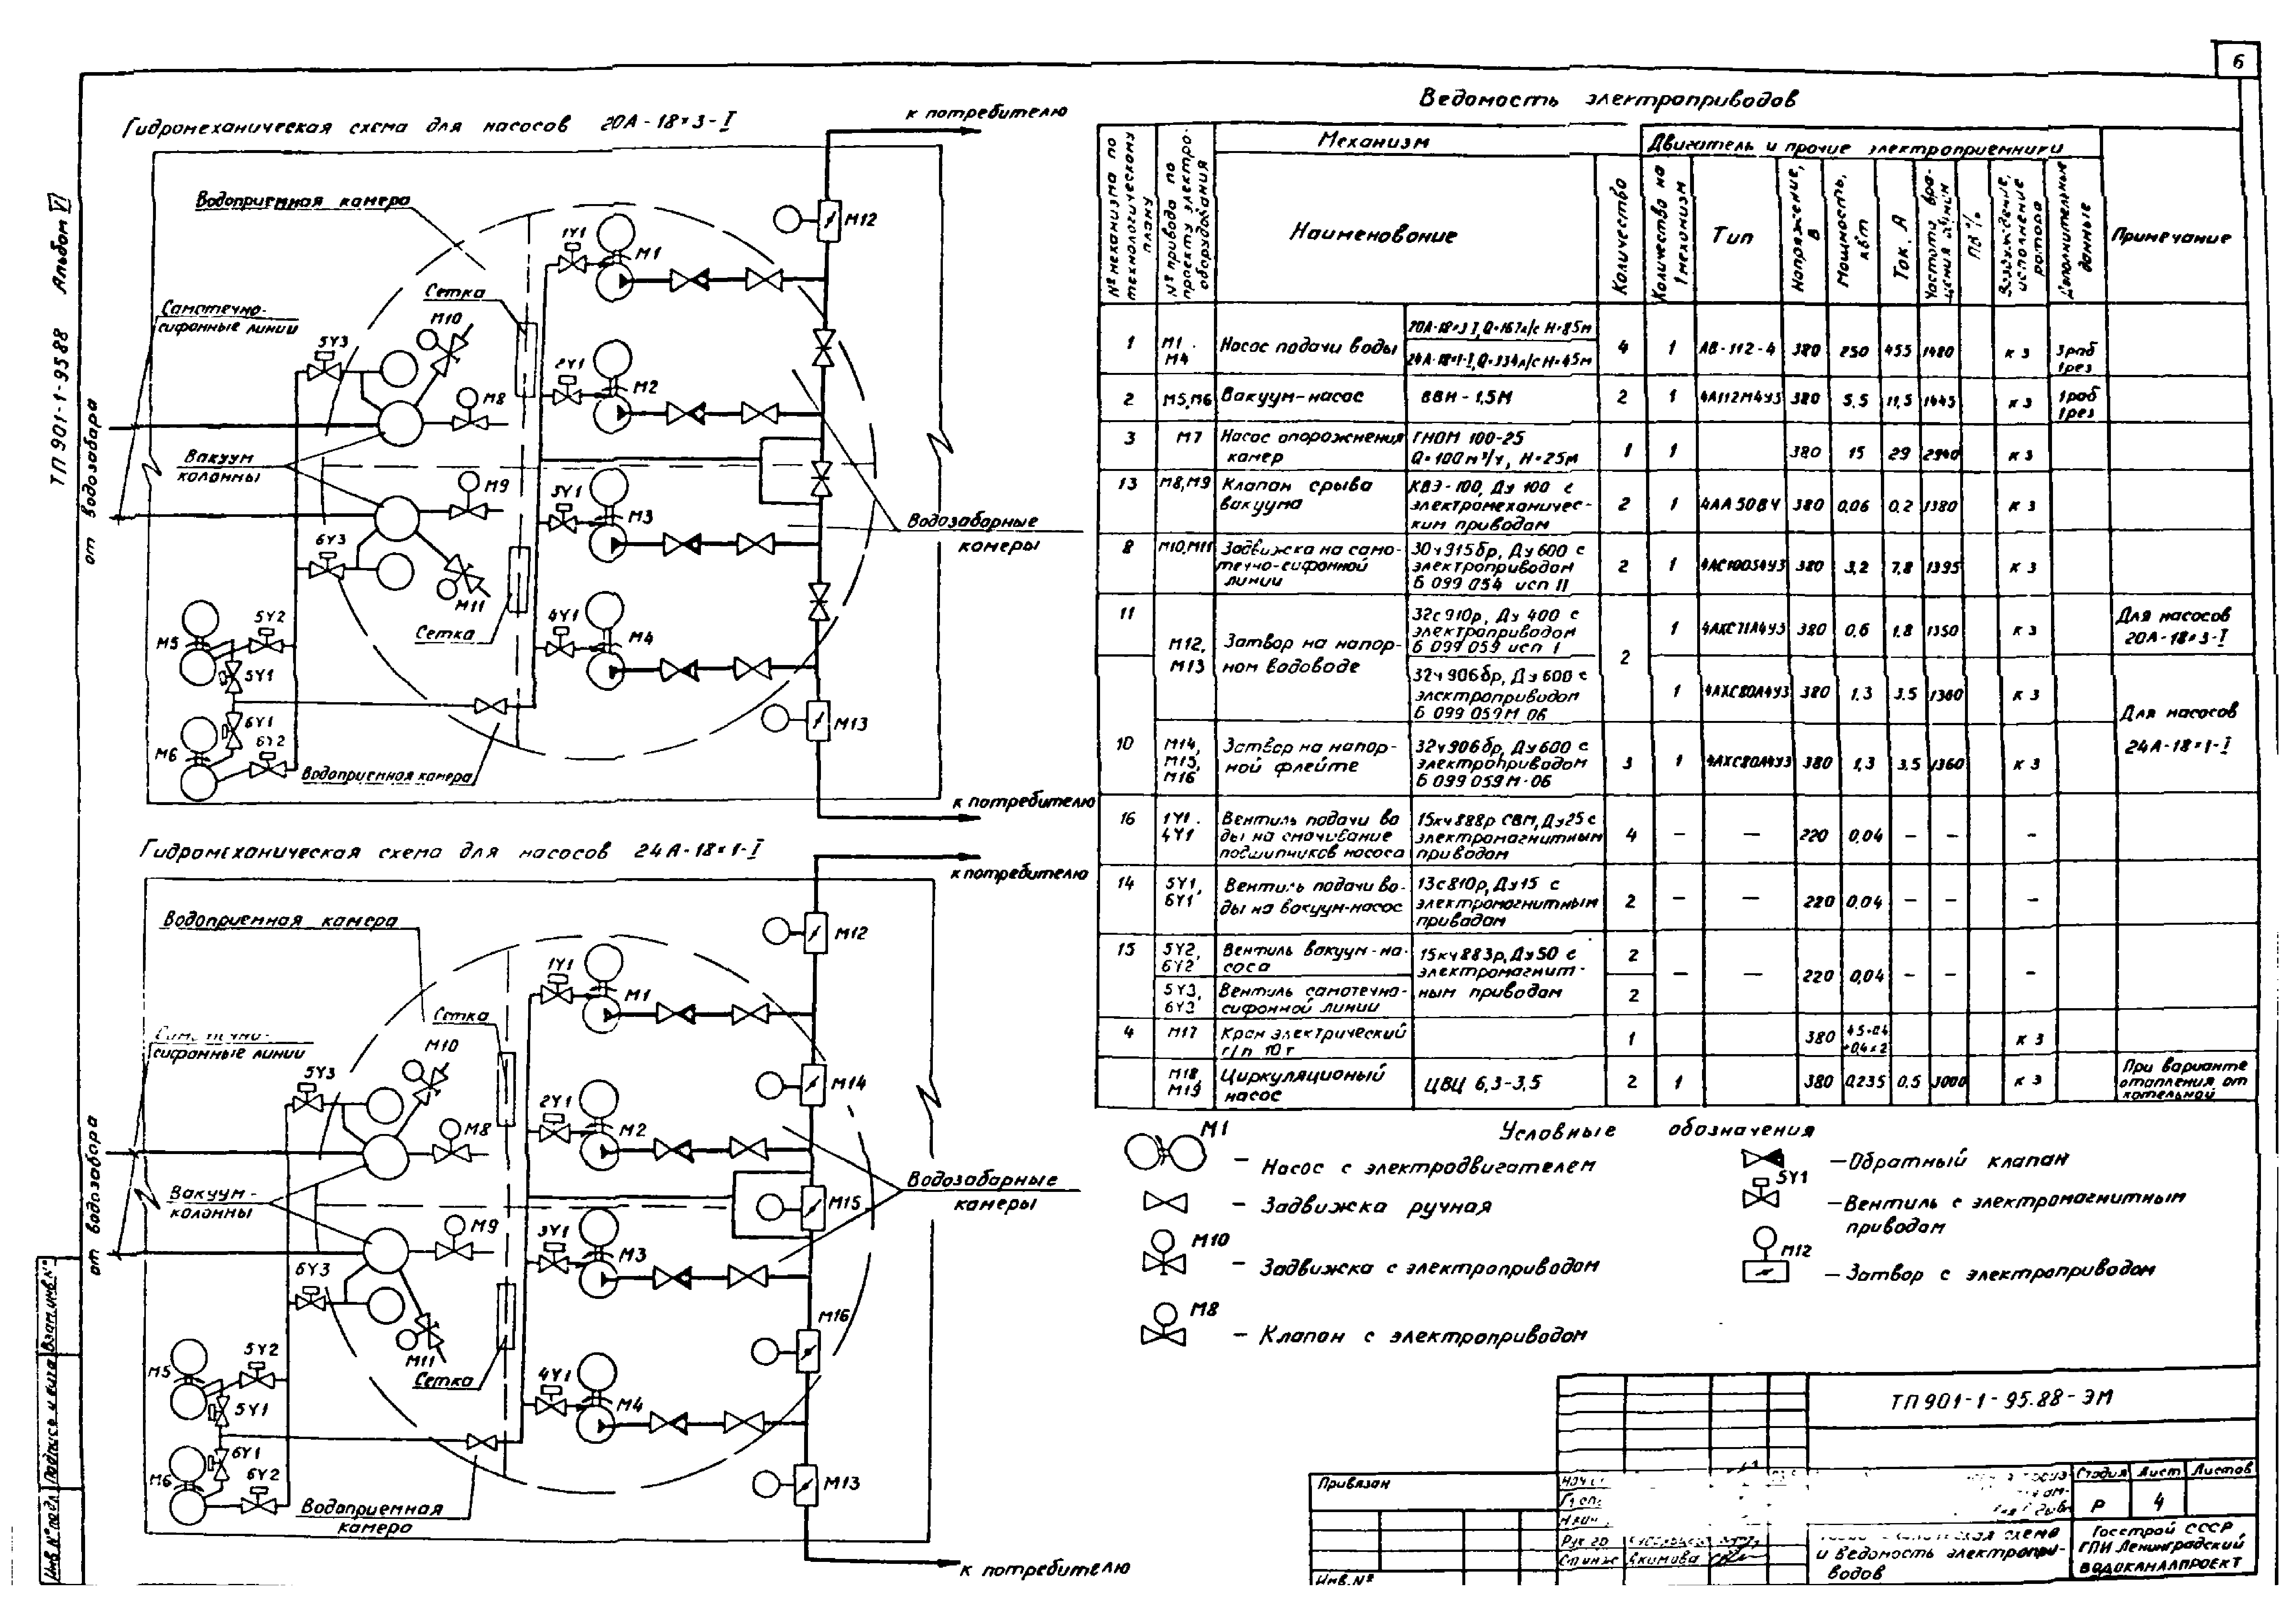 6
ТП 901-1-95 88 Альбом VI
Гидромеханическая схема для насосов 20А-18×3-I
к потребителю
Водоприемная камера
Самотечно-
сифонные линии
Сетка
1У1
М1
М12
5У3
М10
2У1
М2
М8
от водозабора
Вакуум
колонны
М9
3У1
М3
Водозаборные
камеры
6У3
М11
Сетка
4У1
М4
М5
5У2
5У1
6У1
М6
6У2
М13
Водоприемная камера
к потребителю
Гидромеханическая схема для насосов 24А-18×1-I
к потребителю
Водоприемная камера
сифонные линии
Сетка
1У1
М1
М12
5У3
М10
М14
2У1
М2
М8
от водозабора
Вакуум-
колонны
М15
Водозаборные
камеры
М9
3У1
М3
6У3
М11
Сетка
М16
4У1
М4
М5
5У2
5У1
6У1
М6
6У2
М13
Водоприемная
камера
к потребителю
Ведомость электроприводов
№ механизма по технологическому плану
№ привода по проекту электрооборудования
Механизм
Двигатель и прочие электроприемники
Примечание
Наименование
Количество
Количество на 1 механизм
Тип
Напряжение, В
Мощность, кВт
Ток, А
ПВ %
исполнение ротора
Дополнительные данные
1 М1. М4 Насос подачи воды 20А-18×3 I, Q=167л/с Н=85м 4 1 АВ-112-4 380 250 455 1480 КЗ 3раб 1рез
24А-18×1-I, Q=334л/с Н=45м
2 М5,М6 Вакуум-насос ВВН-1,5М 2 1 4А112М4У3 380 5,5 11,5 1445 КЗ 1раб 1рез
3 М7 Насос опорожнения камер ГНОМ 100-25 Q=100м³/ч, Н=25м 1 1 380 15 29 2940 КЗ
13 М8,М9 Клапан срыва вакуума КВЭ-100, Ду 100 с электромеханическим приводом 2 1 4АА50В4 380 0,06 0,2 1380 КЗ
8 М10,М11 Задвижка на самотечно-сифонной линии 30ч915бр, Ду600 с электроприводом Б 099 054 исп II 2 1 4АС100S4У3 380 3,2 7,8 1395 КЗ
11 М12, М13 Затвор на напорном водоводе 32с910р, Ду 400 с электроприводом Б 099 059 исп I 2 1 4АХС71А4У3 380 0,6 1,8 1350 КЗ Для насосов 20А-18×3-I
32ч906бр, Ду600 с электроприводом Б 099 059М 06 1 4АХС80А4У3 380 1,3 3,5 1360 КЗ Для насосов 24А-18×1-I
10 М14, М15, М16 Затвор на напорной флейте 32ч906бр, Ду600 с электроприводом Б 099 059М-06 3 1 4АХС80А4У3 380 1,3 3,5 1360 КЗ
16 1У1. 4У1 Вентиль подачи воды на смачивание подшипников насоса 15кч888р СВМ, Ду25 с электромагнитным приводом 4 — — 220 0,04 — — —
14 5У1, 6У1 Вентиль подачи воды на вакуум-насос 13с810р, Ду15 с электромагнитным приводом 2 — — 220 0,04 — — —
15 5У2, 6У2 Вентиль вакуум-насоса 15кч883р, Ду50 с электромагнитным приводом 2 — — 220 0,04 — — —
5У3, 6У3 Вентиль самотечно-сифонной линии 2
4 М17 Кран электрический г/п 10т 1 380 КЗ
М18, М19 Циркуляционый насос ЦВЦ 6,3-3,5 2 1 380 0,235 0,5 3000 КЗ При варианте отопления от котельной
Условные обозначения
М1 — Насос с электродвигателем
— Задвижка ручная
М10 — Задвижка с электроприводом
М8 — Клапан с электроприводом
— Обратный клапан
5У1 — Вентиль с электромагнитным приводом
М12 — Затвор с электроприводом
ТП 901-1-95.88-ЭМ
Привязан
Инв.№
Рук гр
Якимова
Стадия Лист Листов
Р 4
схема
и ведомость электропри-
водов
Госстрой СССР
ГПИ Ленинградский
ВОДОКАНАЛПРОЕКТ
Инв № подл
Подпись и дата
Взам.инв.№